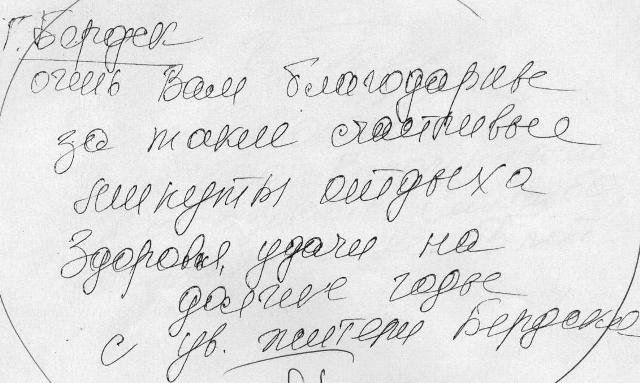 г. Бердск
очень Вам благодарные
за такие счастливые
минуты отдыха
Здоровья, удачи на
долгие годы
с ув. жители Бердска